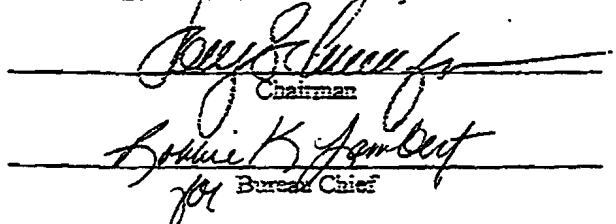 Chairman
Robbie K Lambert
for Bureau Chief